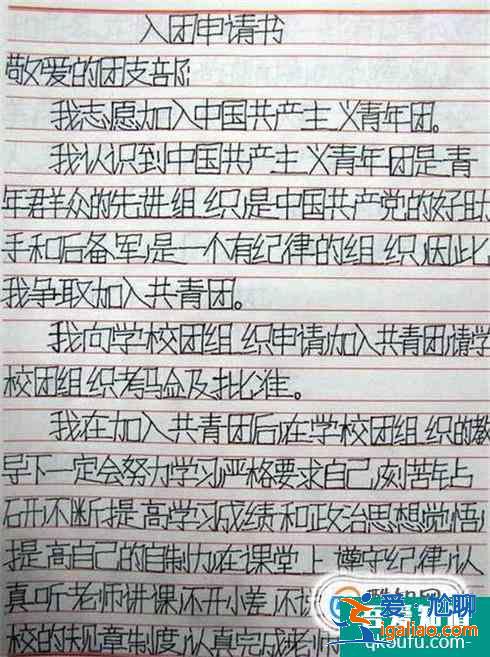 入团申请书
敬爱的团支部:
我志愿加入中国共产主义青年团。
我认识到中国共产主义青年团是青
年群众的先进组织,是中国共产党的好助
手和后备军,是一个有纪律的组织,因此,
我争取加入共青团。
我向学校团组织申请,加入共青团,请学
校团组织考验及批准。
我在加入共青团后,在学校团组织的教
导下一定会努力学习,严格要求自己,刻苦钻
研,不断提高学习成绩和政治思想觉悟,
提高自己的自制力,在课堂上遵守纪律,认
真听老师讲课,不开小差,不
校的规章制度,认真完成老师
爱尬聊
igaliao.com
qk9ufu.com